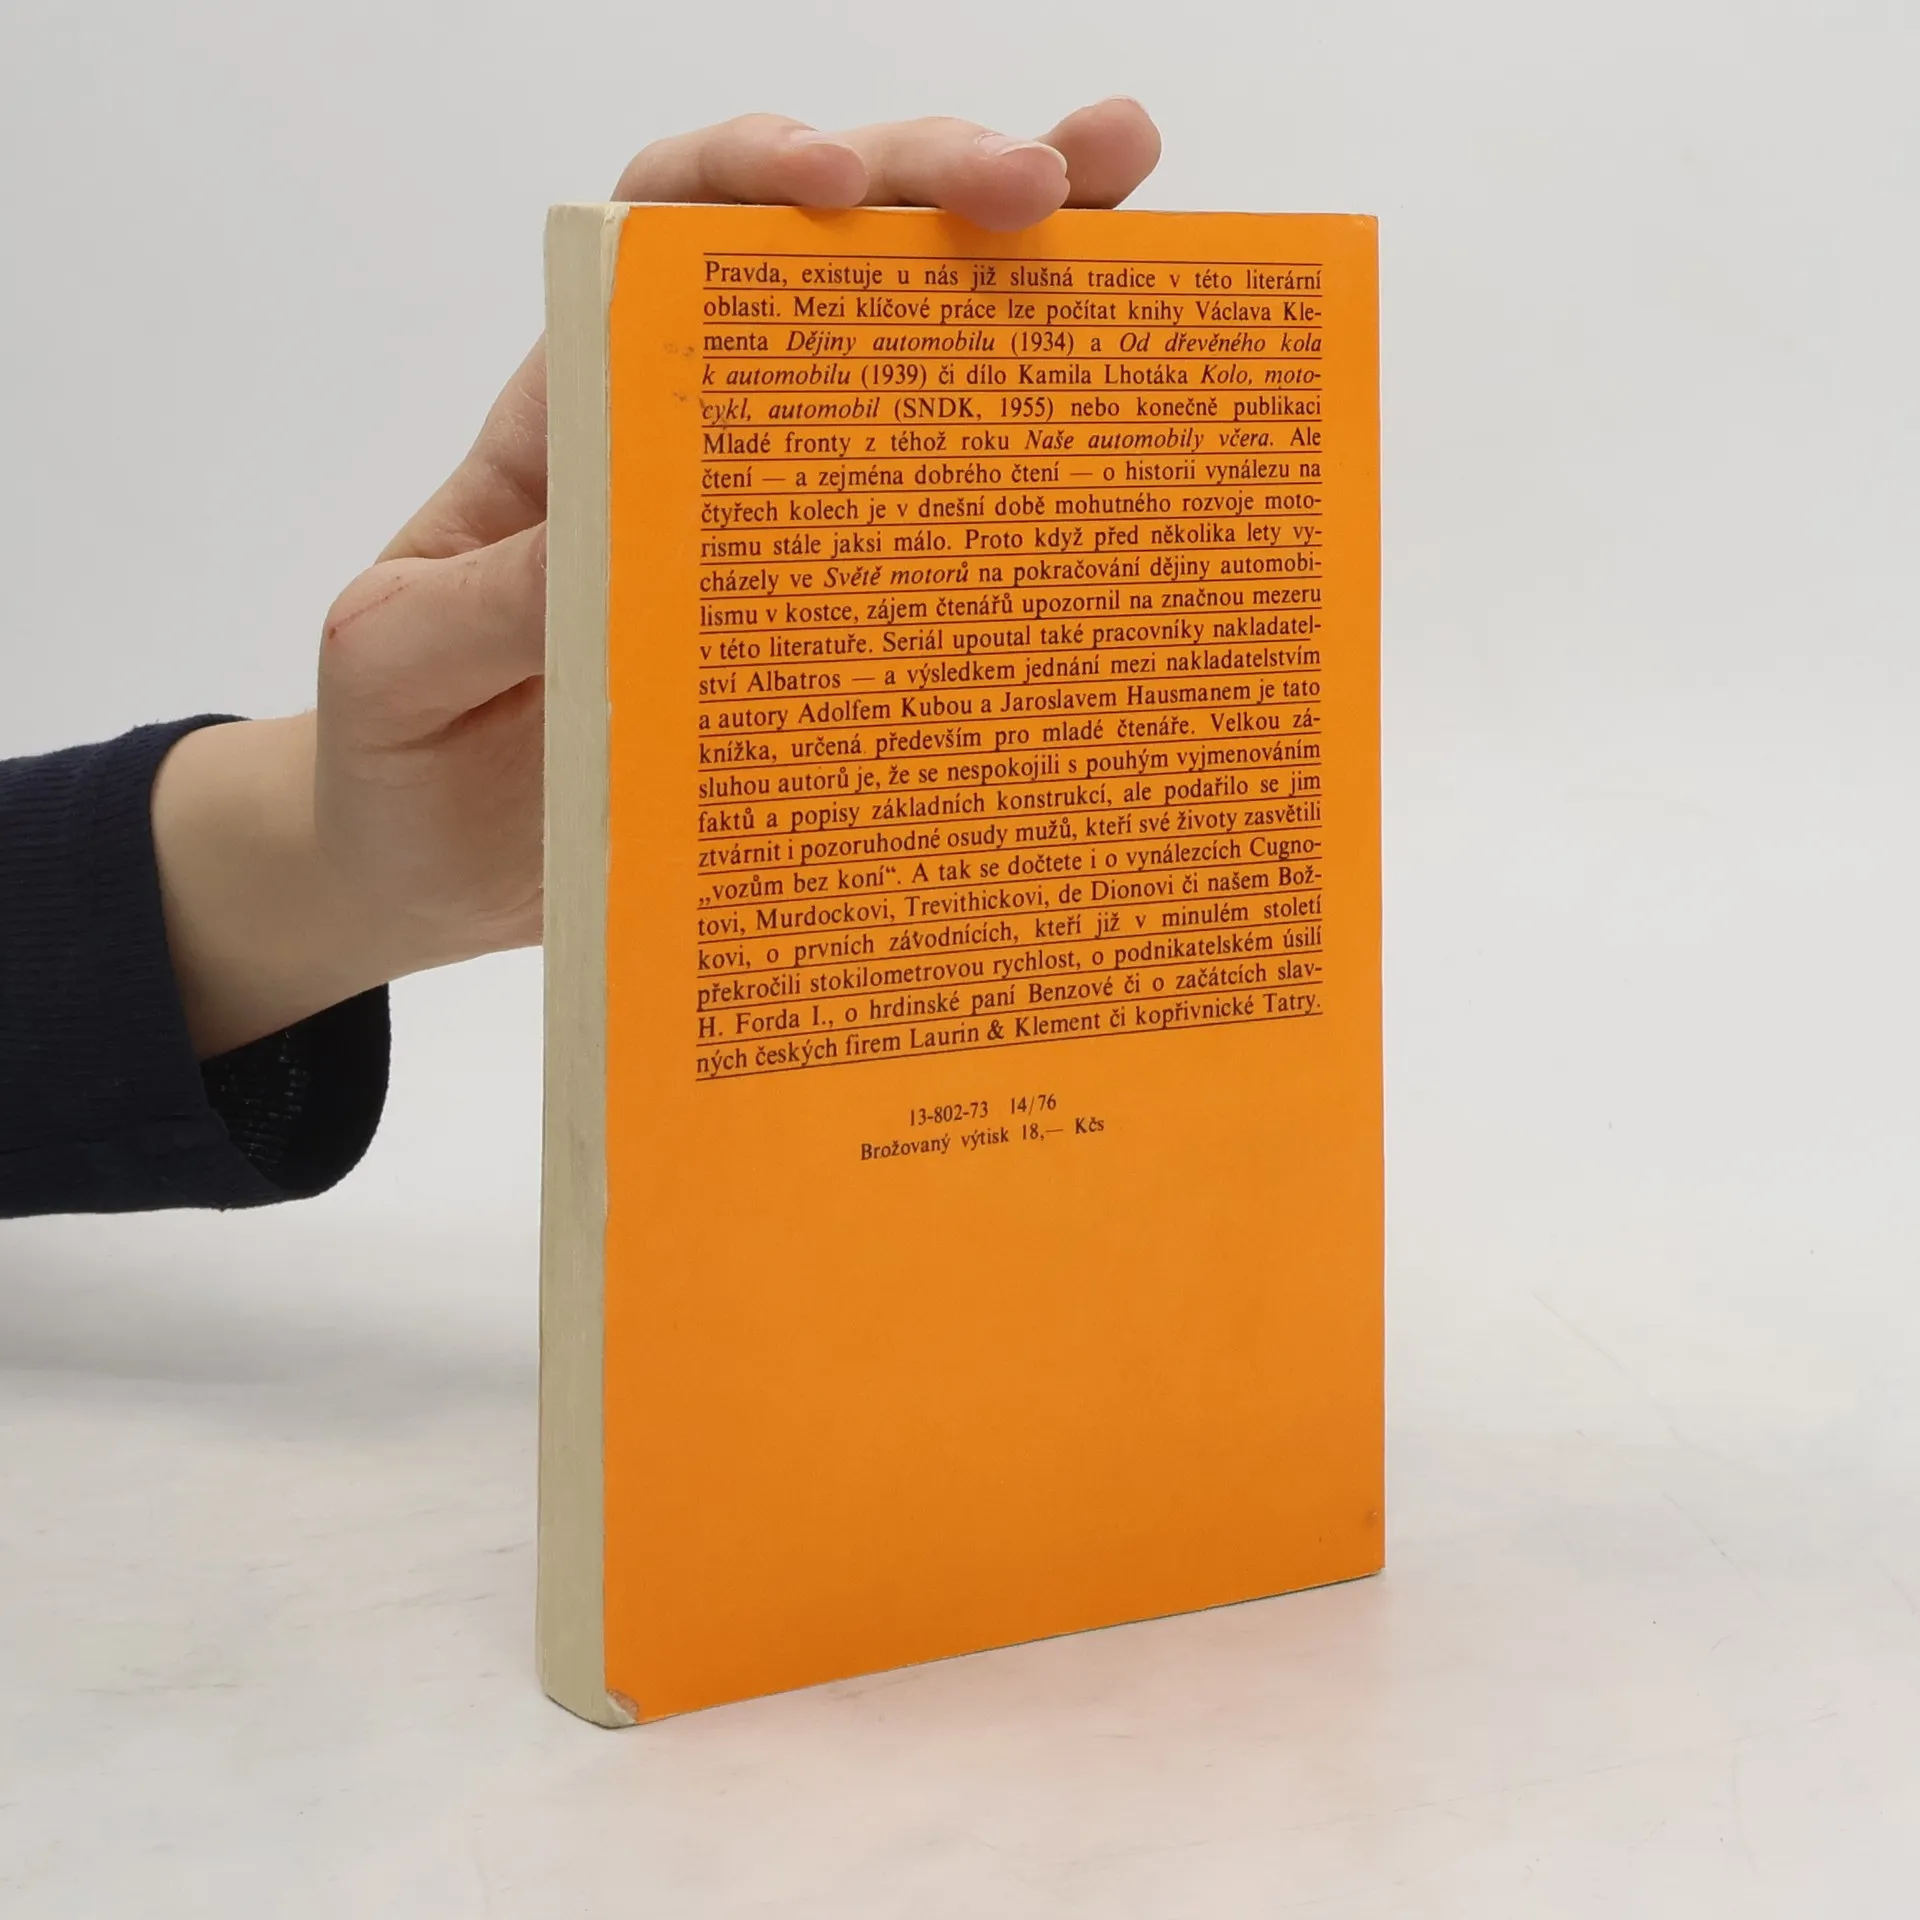 Pravda, existuje u nás již slušná tradice v této literární
oblasti. Mezi klíčové práce lze počítat knihy Václava Kle-
menta Dějiny automobilu (1934) a Od dřevěného kola
k automobilu (1939) či dílo Kamila Lhotáka Kolo, moto-
cykl, automobil (SNDK, 1955) nebo konečně publikaci
Mladé fronty z téhož roku Naše automobily včera. Ale
čtení — a zejména dobrého čtení — o historii vynálezu na
čtyřech kolech je v dnešní době mohutného rozvoje moto-
rismu stále jaksi málo. Proto když před několika lety vy-
cházely ve Světě motorů na pokračování dějiny automobi-
lismu v kostce, zájem čtenářů upozornil na značnou mezeru
v této literatuře. Seriál upoutal také pracovníky nakladatel-
ství Albatros — a výsledkem jednání mezi nakladatelstvím
a autory Adolfem Kubou a Jaroslavem Hausmanem je tato
knížka, určená především pro mladé čtenáře. Velkou zá-
sluhou autorů je, že se nespokojili s pouhým vyjmenováním
faktů a popisy základních konstrukcí, ale podařilo se jim
ztvárnit i pozoruhodné osudy mužů, kteří své životy zasvětili
„vozům bez koní“. A tak se dočtete i o vynálezcích Cugno-
tovi, Murdockovi, Trevithickovi, de Dionovi či našem Bož-
kovi, o prvních závodnících, kteří již v minulém století
překročili stokilometrovou rychlost, o podnikatelském úsilí
H. Forda I., o hrdinské paní Benzové či o začátcích slav-
ných českých firem Laurin & Klement či kopřivnické Tatry.
13-802-73 14/76
Brožovaný výtisk 18,— Kčs